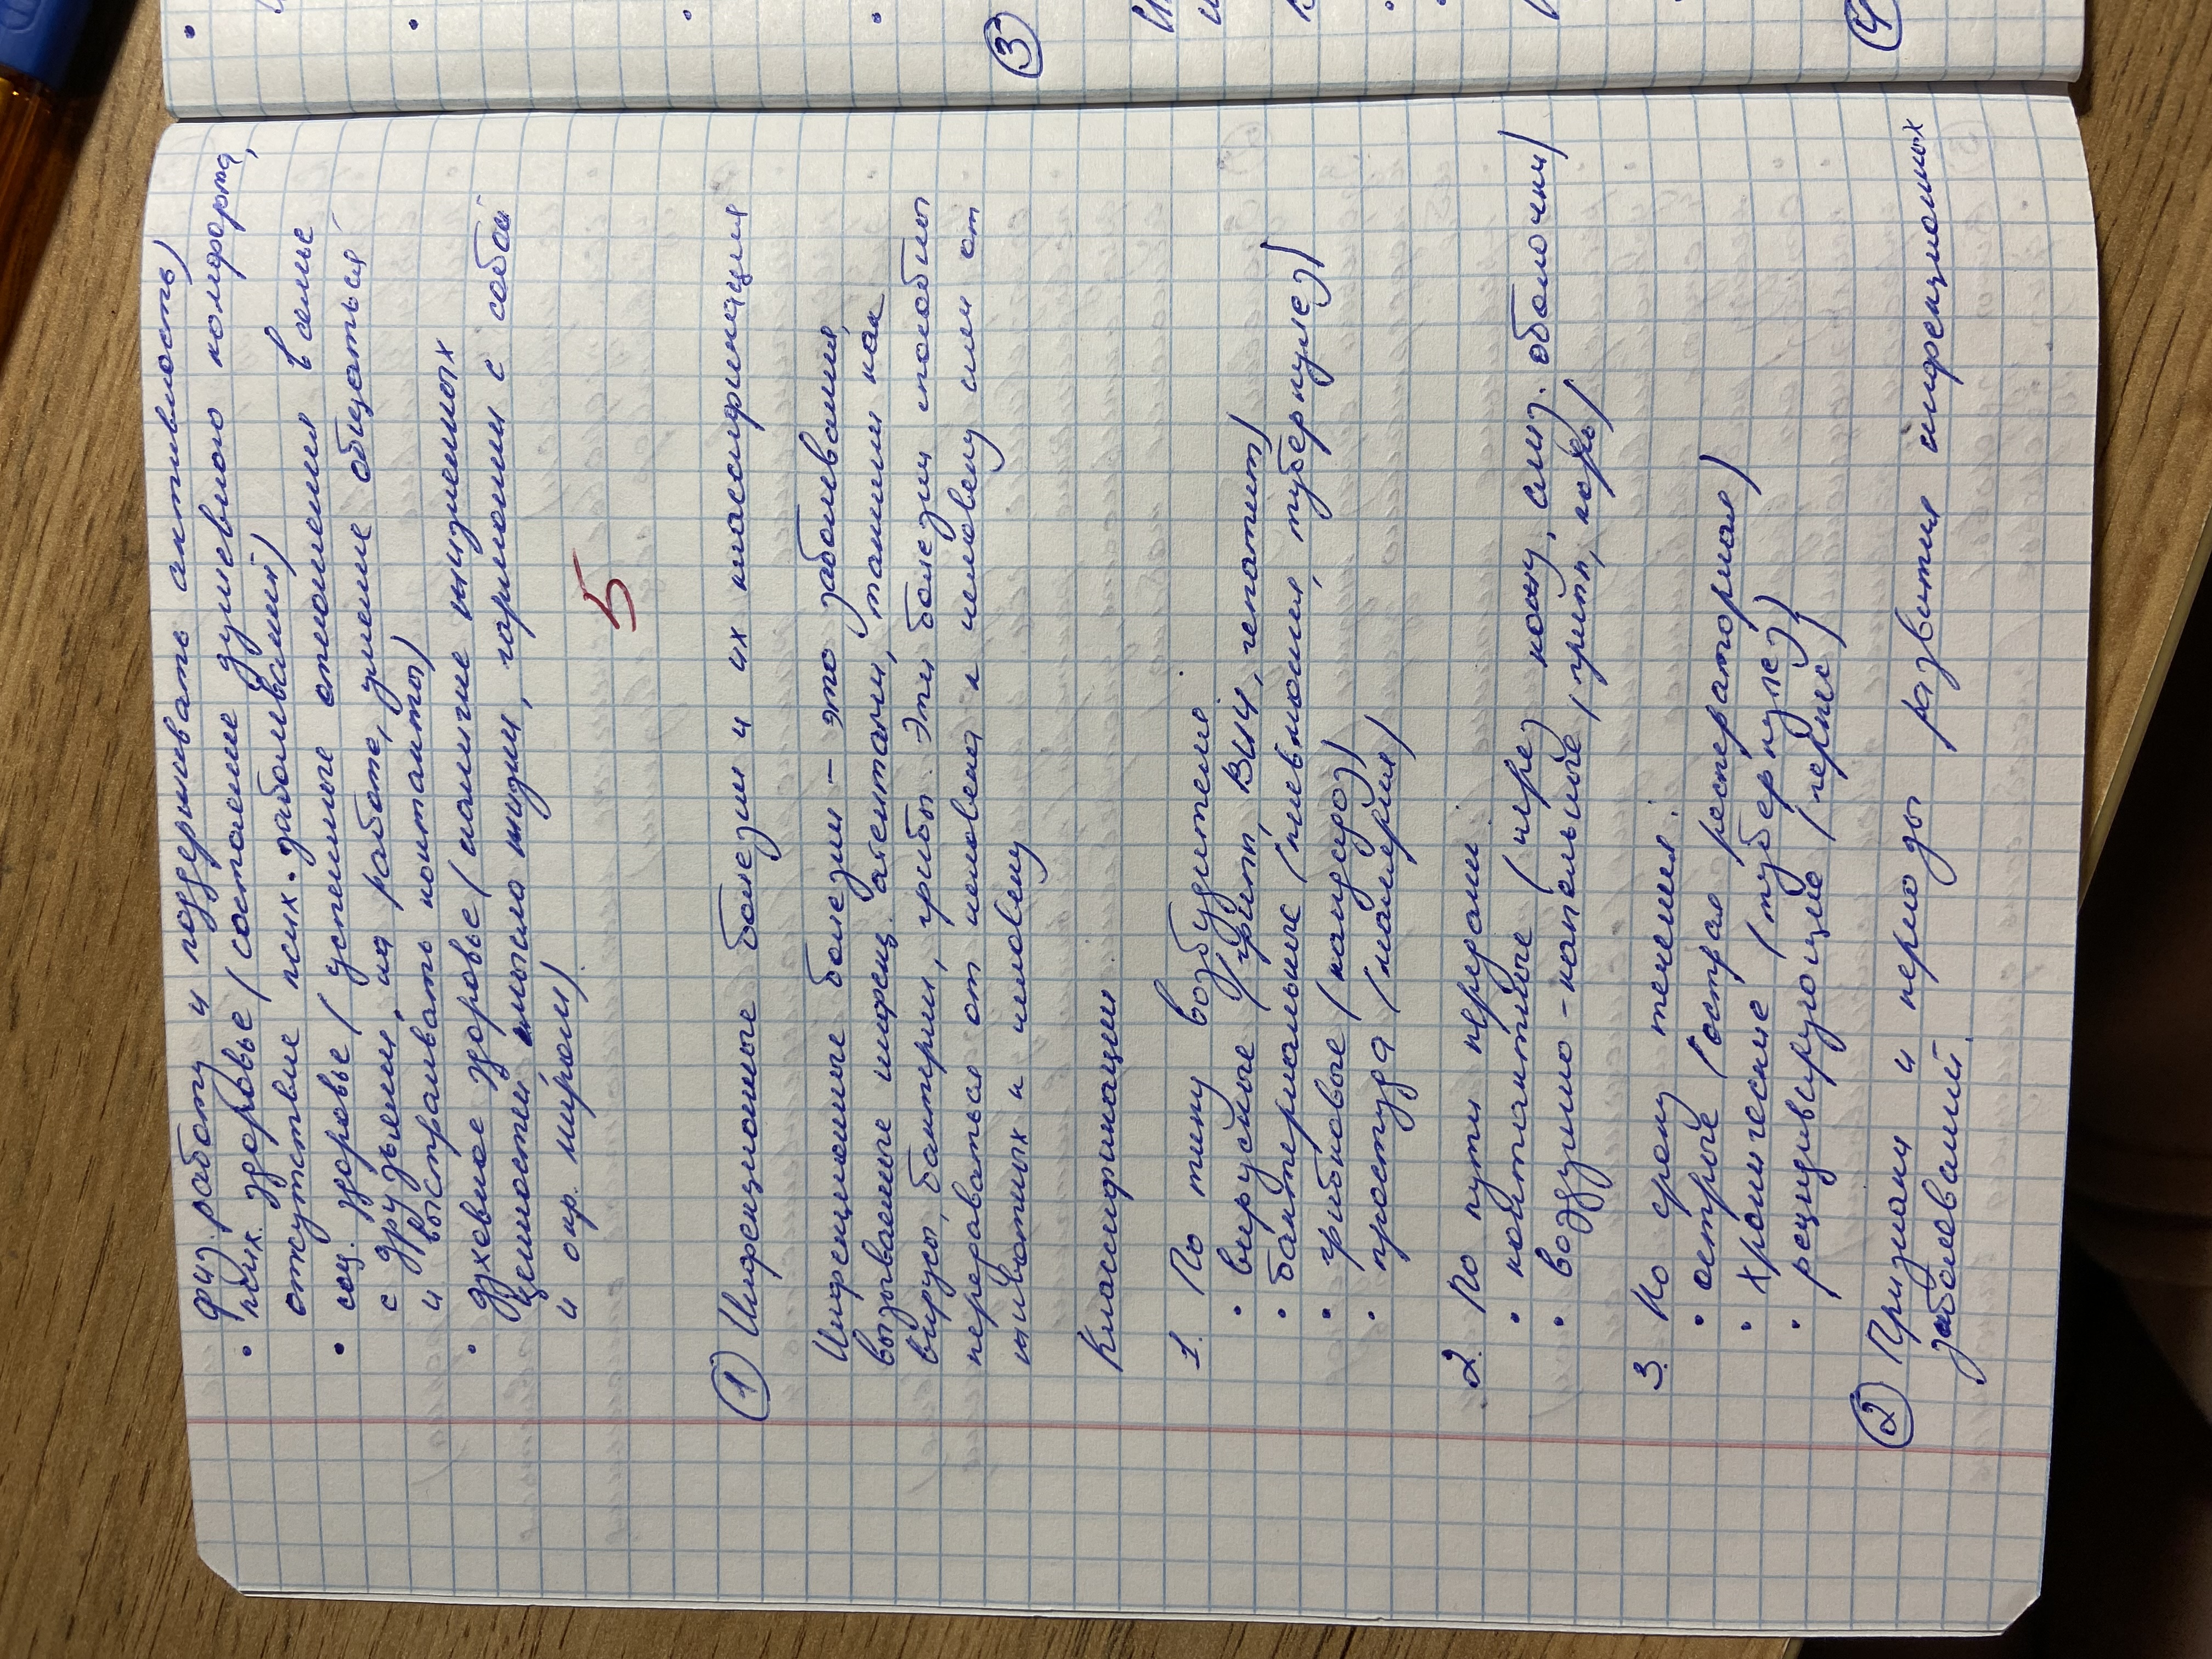 физ. работу и поддерживать активность)
• псих. здоровье (состояние душевного комфорта,
отсутствие псих. заболеваний)
• соц. здоровье (успешные отношения в семье
с друзьями, на работе, умение общаться
и выстраивать контакты)
• духовное здоровье (наличие жизненных
ценностей смысла жизни, гармонии с собой
и окр. миром)
5
① Инфекционные болезни и их классификация
Инфекционные болезни – это заболевания,
вызываемые инфекц. агентами, такими как
вирусы, бактерии, грибы. Эти болезни способны
передаваться от человека к человеку или от
животных к человеку
Классификации
1. По типу возбудителя:
• вирусные (грипп, ВИЧ, гепатит)
• бактериальные (пневмония, туберкулез)
• грибковые (кандидоз)
• простуда (малярия)
2. По пути передачи:
• контактные (через кожу, слиз. оболочки)
• воздушно-капельные (грипп, корь)
3. По сроку течения:
• острые (острая респераторная)
• хронические (туберкулез)
• рецидивирующие (герпес)
② Признаки и периоды развития инфекционных
заболеваний.
③
④